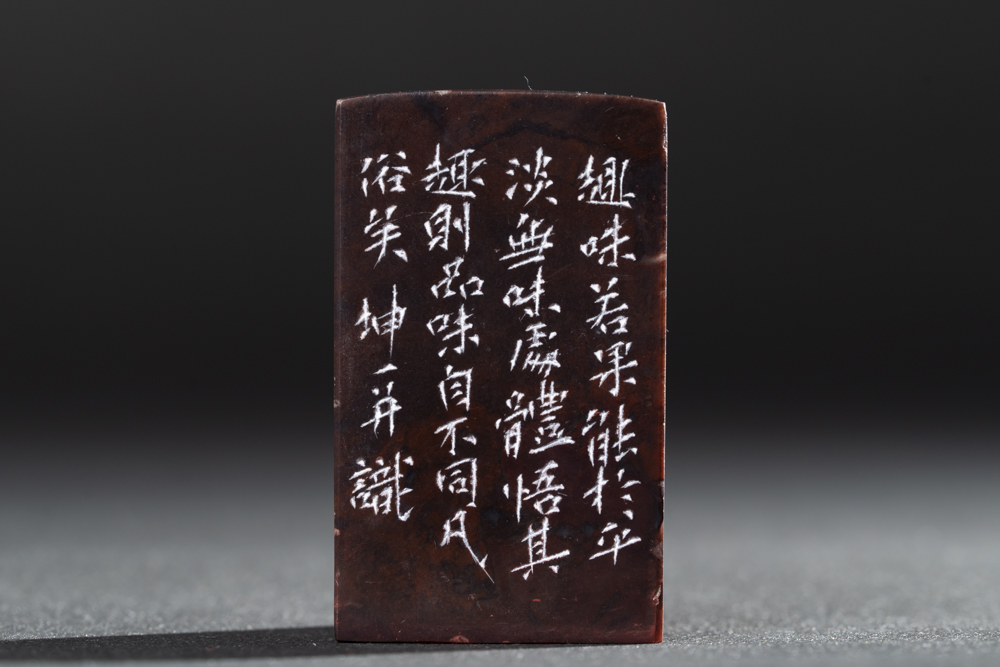 趣味若果能於平
淡無味處體悟其
趣則品味自不同凡
俗矣 坤一并識